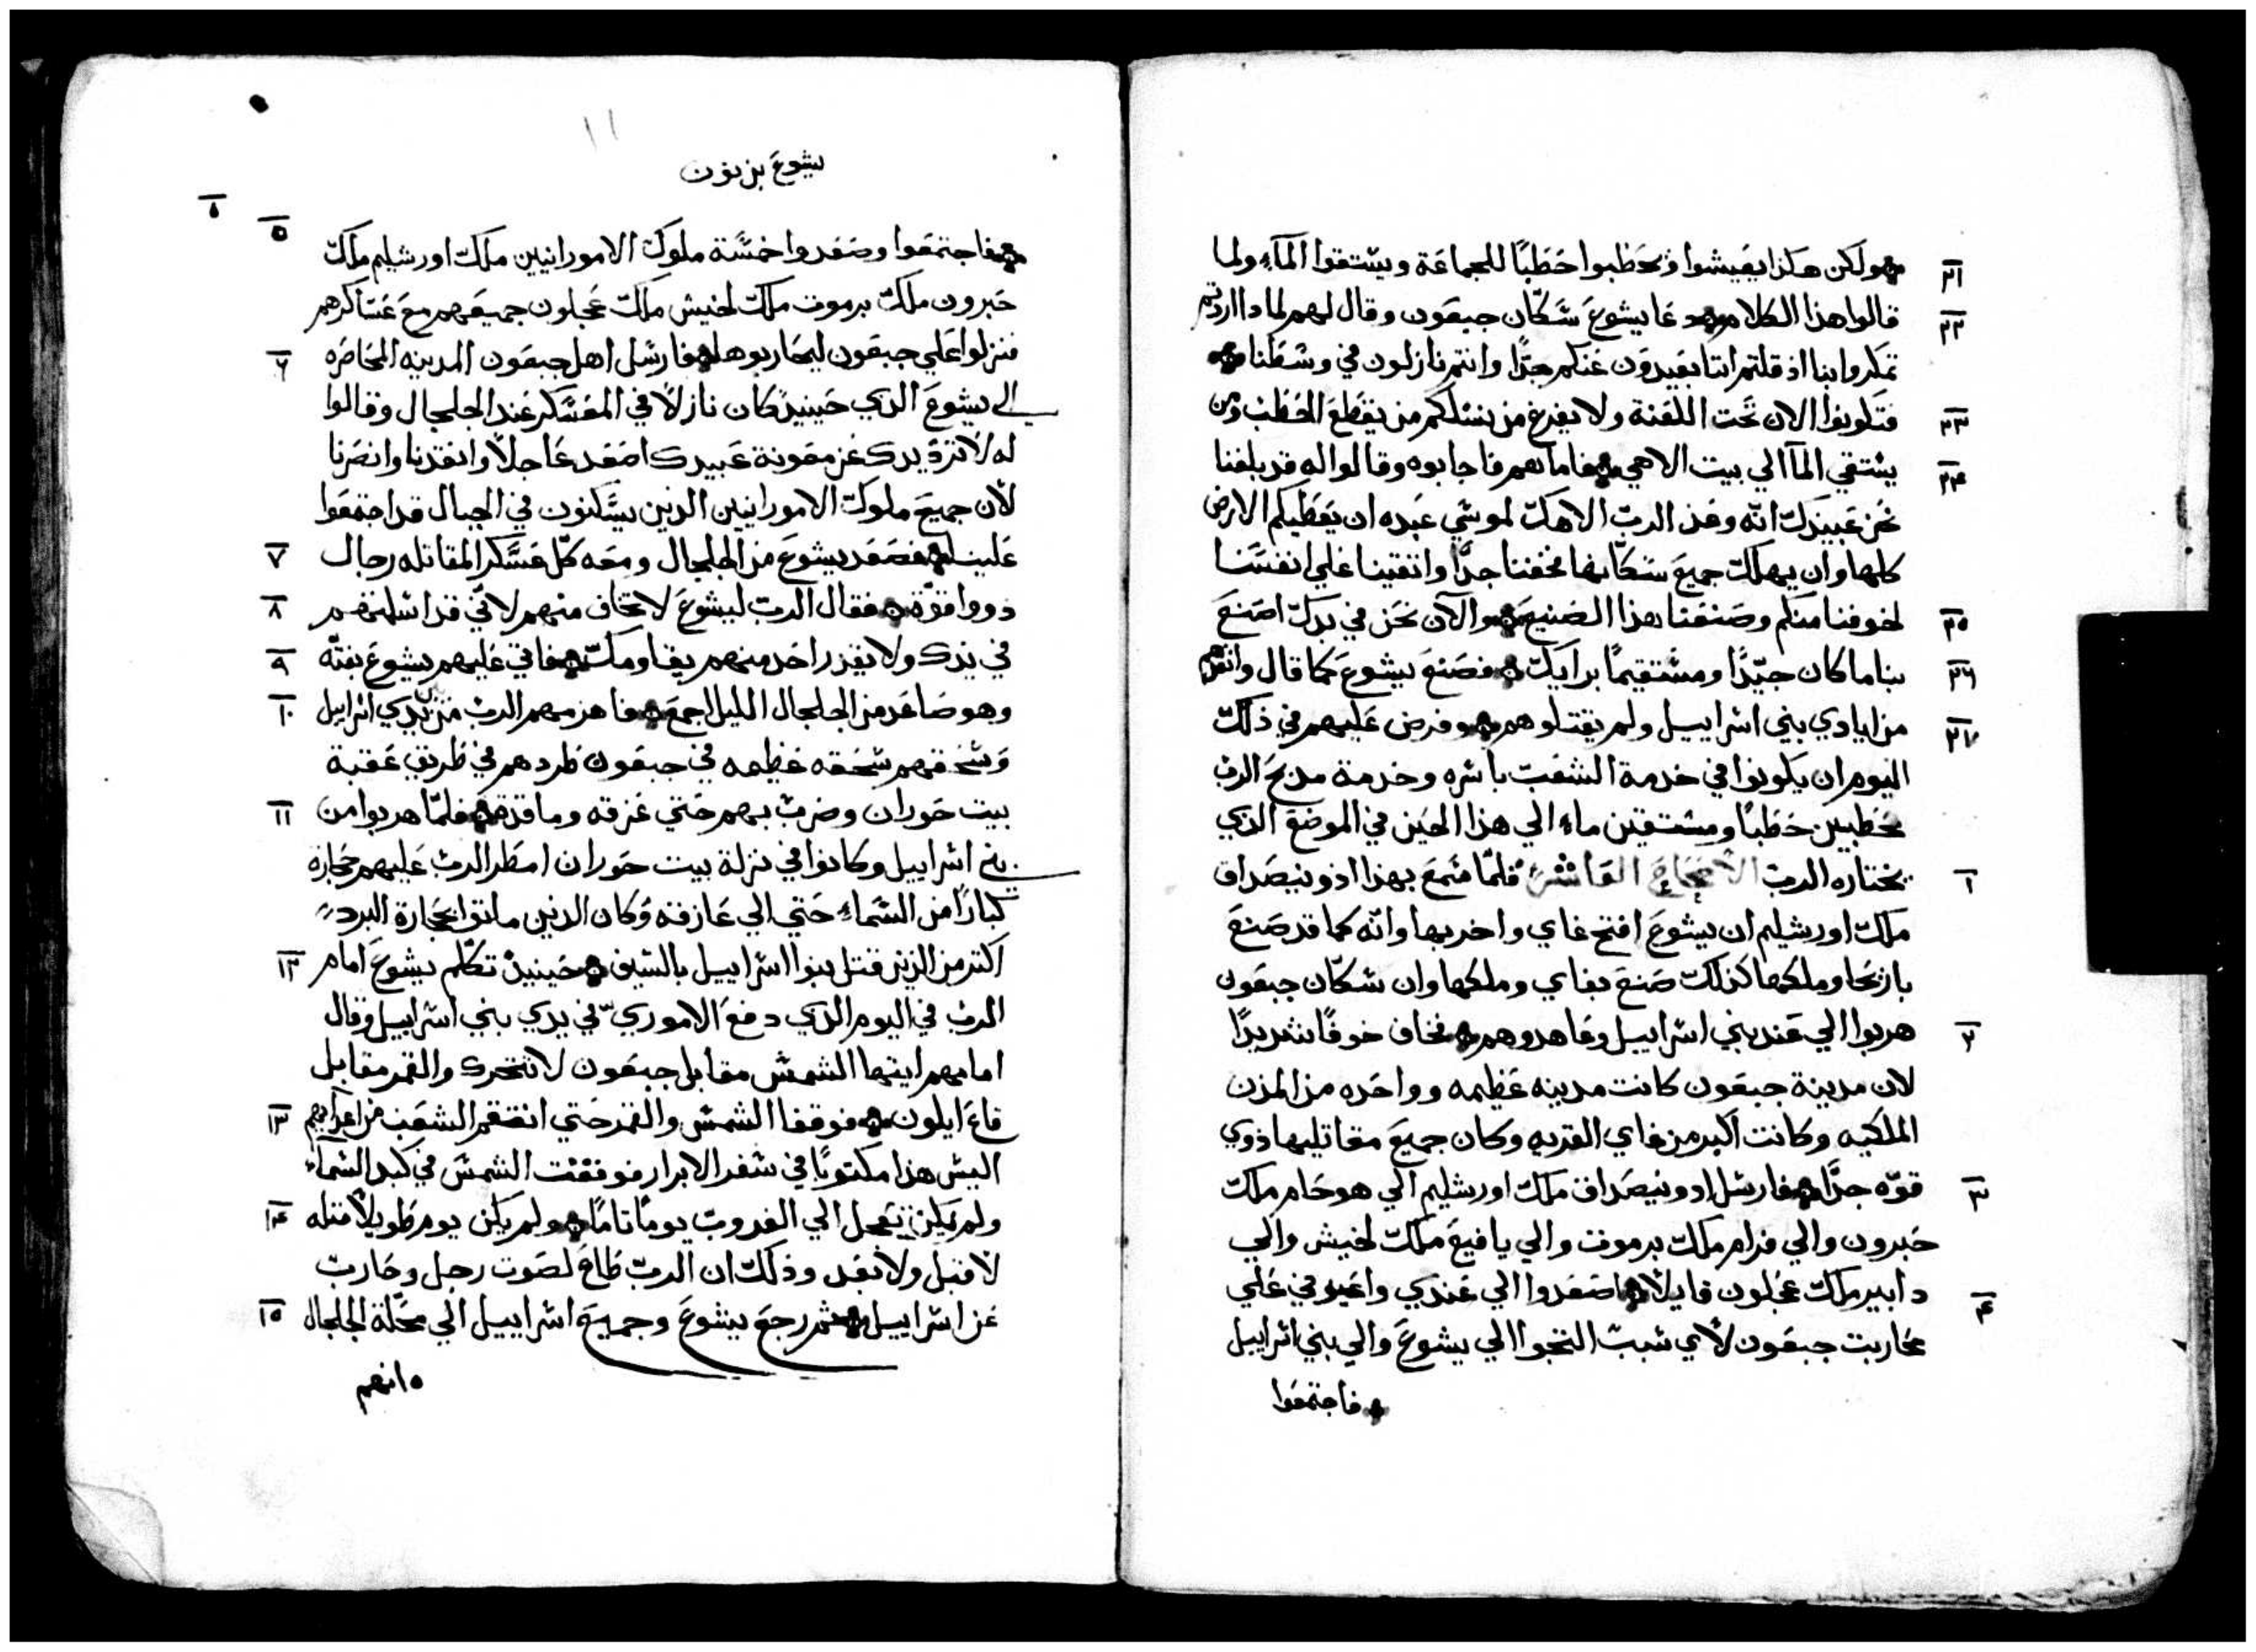 ولكن هكذا يعيشوا فيحطبوا حطبًا للجماعة ويستقوا المآء ولما
٢١
قالوا هذا الكلام دعا يشوع سكّان جبعون وقال لهم لماذا اردتم
٢٢
تمكروا بنا اذ قلتم اننا بعيدون عنكم جدًّا وانتم نازلون في وسطنا
فتكونوا الان تحت اللعنة ولا يفرغ من نسلكم من يقطع الحطب ومن
٢٣
يستقي المآ الي بيت الاهي فاجابوه وقالوا له قد بلغنا
٢٤
نحن عبيدك انّه وعد الربّ الاهك لموسي عبده ان يعطيكم الارض
كلها وان يهلك جميع سكّانها فخفنا جدًّا واتقينا علي انفسنا
لخوفنا منكم وصنعنا هذا الصنيع والآن نحن في يدك اصنع
٢٥
بنا ما كان جيّدًا ومستقيمًا برايك فصنع يشوع كما قال وانقذهم
٢٦
من ايادي بني اسراييل ولم يقتلوهم وفرض عليهم في ذلك
٢٧
اليوم ان يكونوا في خدمة الشعب باسره وخدمة مذبح الربّ
محطبين حطبًا ومستقين ماء الي هذا الحين في الموضع الذي
يختاره الربّ الاصحاح العاشر فلمّا سمع بهذا ادونيصداق
١
ملك اورشليم ان يشوع افتح غاي واخربها وانّه كما قد صنع
باريحا وملكها كذلك صنع بغاي وملكها وان سكّان جبعون
هربوا الي عند بني اسراييل وعاهدوهم فخاف خوفًا شديدًا
٢
لان مدينة جبعون كانت مدينه عظيمه وواحده من المدن
الملكيه وكانت اكبر من غاي القريه وكان جميع مقاتليها ذوي
قوّه جدًّا فارسل ادونيصداق ملك اورشليم الي هوحام ملك
٣
حبرون والي فرام ملك يرموت والي يافيع ملك لخيش والي
دابير ملك عجلون قايلًا اصعدوا الي عندي واعينوني علي
٤
محاربت جبعون لأي سبب التجوا الي يشوع والي بني اسراييل
فاجتمعوا
١١
يشوع بن نون
٨
فاجتمعوا وصعدوا خمسة ملوك الامورانيين ملك اورشليم ملك
٥
حبرون ملك يرموت ملك لخيش ملك عجلون جميعهم مع عساكرهم
فنزلوا علي جبعون ليحاربوها فارسل اهل جبعون المدينه المحاصره
٦
الي يشوع الذي حينيذ كان نازلًا في المعسكر عند الجلجال وقالوا
له لا تردّ يدك عن معونة عبيدك اصعد عاجلًا وانقذنا وانصرنا
لأن جميع ملوك الامورانيين الذين يسكنون في الجبال قد اجتمعوا
علينا فصعد يشوع من الجلجال ومعه كلّ عسكر المقاتله رجال
٧
ذووا قوّة فقال الربّ ليشوع لا تخاف منهم لانّي قد اسلمتهم
٨
في يدك ولا يقدر احد منهم يقاومك فاتي عليهم يشوع بغتّه
٩
وهو صاعد من الجلجال الليل اجمع فاهزمهم الربّ من يدي اسراييل
١٠
وسحقهم سحقه عظيمه في جبعون طردهم في طريق عقبة
بيت حوران وضرب بهم حتي عزقه وماقده فلمّا هربوا من
١١
بني اسراييل وكانوا في نزلة بيت حوران امطر الربّ عليهم حجازه
كبارًا من السماء حتي الي عازقه وكان الذين ماتوا بحجارة البرد
اكتر من الذين قتل بنوا اسراييل بالسيف حينيذ تكلّم يشوع امام
١٢
الربّ في اليوم الذي دفع الاموريّ في يدي بني اسراييل وقال
امامهم ايتها الشمس مقابل جبعون لا تتحرك والقمر مقابل
قاع ايلون فوقفا الشمس والقمر حتي انتقم الشعب من اعدايهم
١٣
اليس هذا مكتوبًا في سفر الابرار فوقفت الشمس في كبد السماء
ولم تكن تعجل الي الغروب يومًا تامًّا ولم يكن يوم طويلًا مثله
١٤
لا قبل ولا بعد وذلك ان الربّ طاع لصوت رجل وحارب
عن اسراييل ثم رجع يشوع وجميع اسراييل الي محلّة الجلجال
١٥
انهم